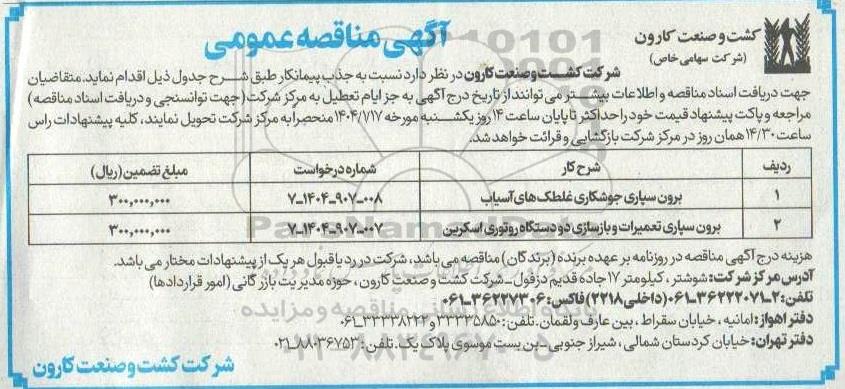 کشت و صنعت کارون
(شرکت سهامی خاص)
آگهی مناقصه عمومی
شرکت کشت و صنعت کارون در نظر دارد نسبت به جذب پیمانکار طبق شرح جدول ذیل اقدام نماید. متقاضیان
جهت دریافت اسناد مناقصه و اطلاعات بیشتر می توانند از تاریخ درج آگهی به جز ایام تعطیل به مرکز شرکت (جهت توانسنجی و دریافت اسناد مناقصه)
مراجعه و پاکت پیشنهاد قیمت خود را حداکثر تا پایان ساعت ۱۴ روز یکشنبه مورخه ۱۴۰۴/۱/۱۷ منحصرا به مرکز شرکت تحویل نمایند، کلیه پیشنهادات راس
ساعت ۱۴/۳۰ همان روز در مرکز شرکت بازگشایی و قرائت خواهد شد.
ردیف شرح کار شماره درخواست مبلغ تضمین (ریال)
۱ برون سپاری جوشکاری غلطک های آسیاب ۷_۱۴۰۴_۹۰۷_۰۰۸ ۳۰۰,۰۰۰,۰۰۰
۲ برون سپاری تعمیرات و بازسازی دو دستگاه روتوری اسکرین ۷_۱۴۰۴_۹۰۷_۰۰۷ ۳۰۰,۰۰۰,۰۰۰
هزینه درج آگهی مناقصه در روزنامه بر عهده برنده (برندگان) مناقصه می باشد، شرکت در رد یا قبول هر یک از پیشنهادات مختار می باشد.
آدرس مرکز شرکت: شوشتر، کیلومتر ۱۷ جاده قدیم دزفول_شرکت کشت و صنعت کارون، حوزه مدیریت بازرگانی (امور قراردادها)
تلفن: ۲_۳۶۲۲۲۰۷۱_۰۶۱ (داخلی ۲۲۱۸) فاکس: ۳۶۲۲۷۳۰۶_۰۶۱
دفتر اهواز: امانیه، خیابان سقراط، بین عارف و لقمان. تلفن: ۳۳۳۳۵۸۵۰ و ۳۳۳۳۸۲۴۴_۰۶۱
دفتر تهران: خیابان کردستان شمالی، شیراز جنوبی_بن بست موسوی پلاک یک. تلفن: ۸۸۰۳۶۷۵۳_۰۲۱
شرکت کشت و صنعت کارون